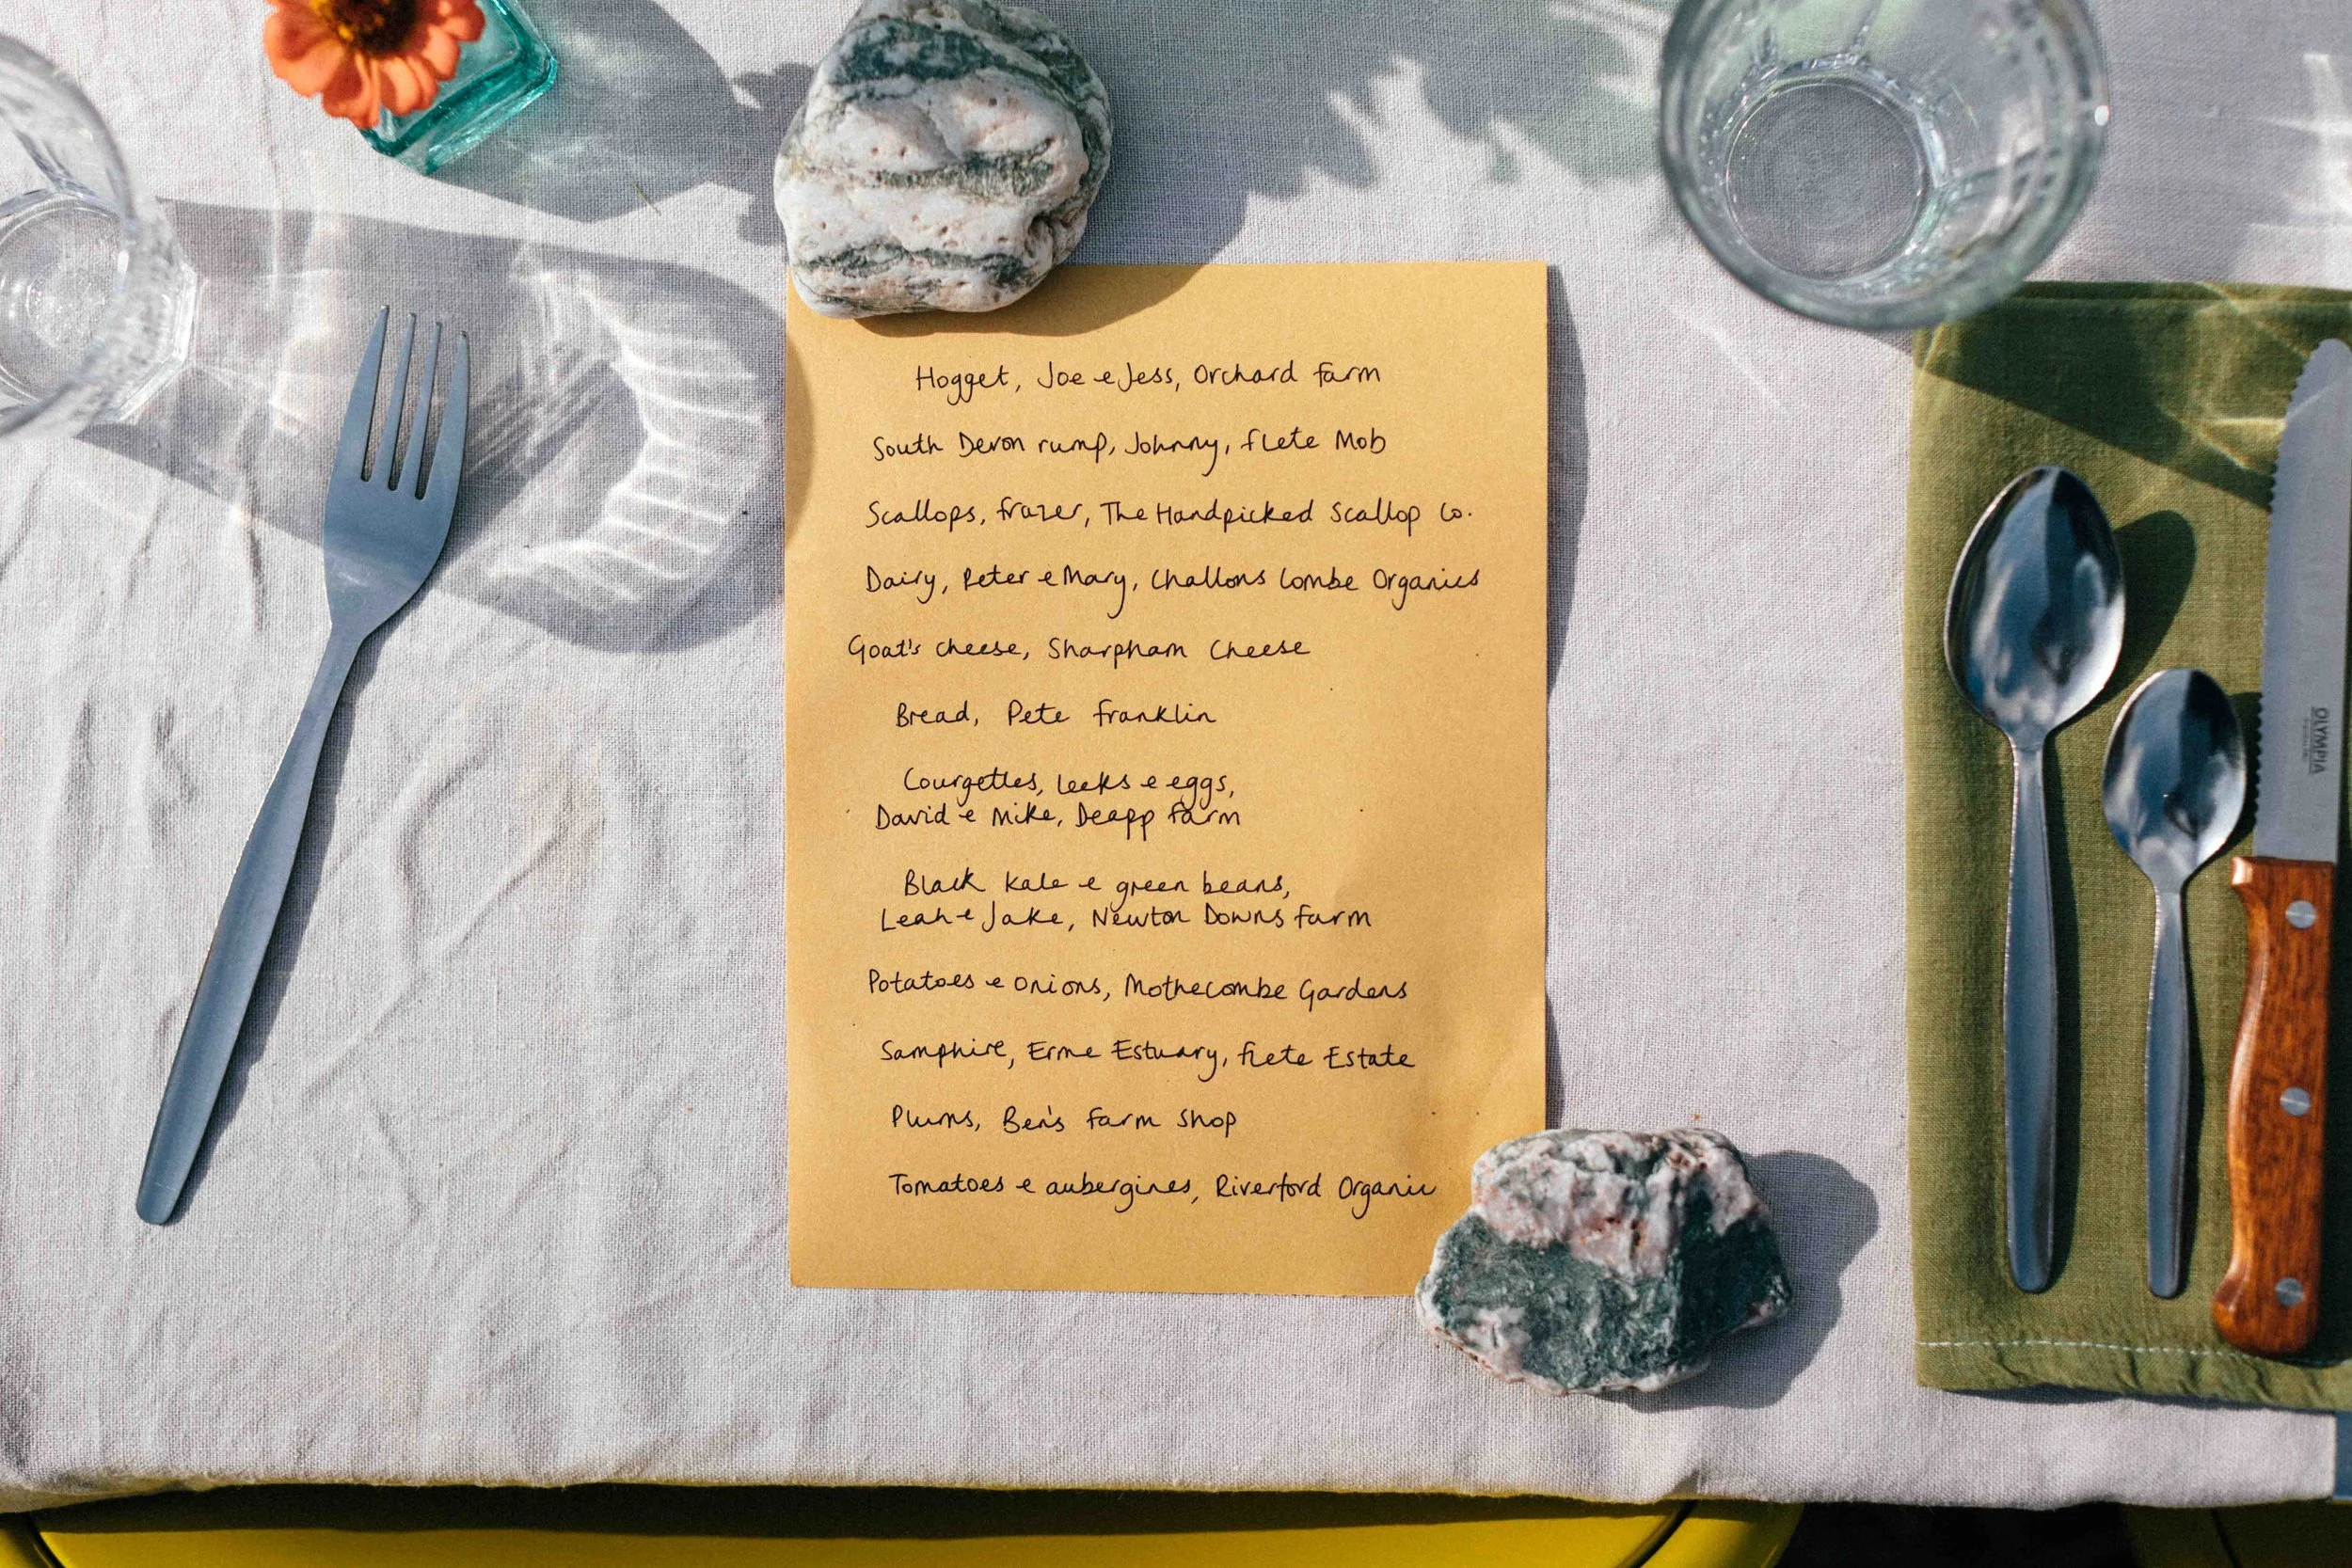 Hogget, Joe e Jess, Orchard Farm
South Devon rump, Johnny, Flete Mob
Scallops, Frazer, The Handpicked Scallop Co.
Dairy, Peter e Mary, Challons Combe Organics
Goat's cheese, Sharpham Cheese
Bread, Pete Franklin
Courgettes, leeks e eggs,
David e Mike, Deapp Farm
Black Kale e green beans,
Leah e Jake, Newton Downs Farm
Potatoes e Onions, Mothecombe Gardens
Samphire, Erme Estuary, Flete Estate
Plums, Ben's Farm Shop
Tomatoes e aubergines, Riverford Organic
OLYMPIA